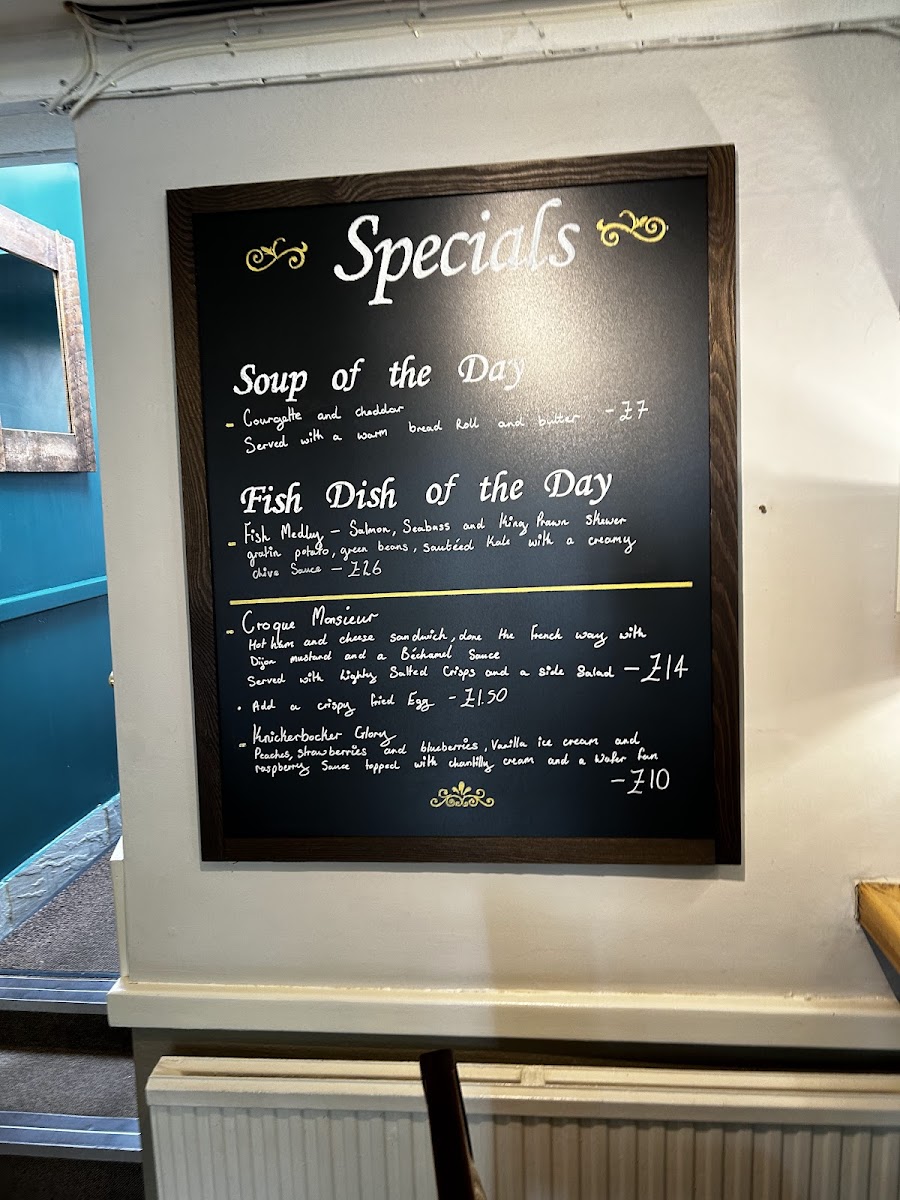 Specials
Soup of the Day
- Courgette and cheddar
Served with a warm bread Roll and butter - £7
Fish Dish of the Day
- Fish Medley - Salmon, Seabass and King Prawn skewer
gratin potato, green beans, sautéed Kale with a creamy
chive Sauce - £26
- Croque Monsieur
Hot ham and cheese sandwich, done the French way with
Dijon mustard and a Béchamel Sauce
Served with lighty Salted Crisps and a side Salad - £14
• Add a crispy fried Egg - £1.50
- Knickerbocker Glory
Peaches, strawberries and blueberries, Vanilla ice cream and
raspberry Sauce topped with chantilly cream and a wafer fan
- £10